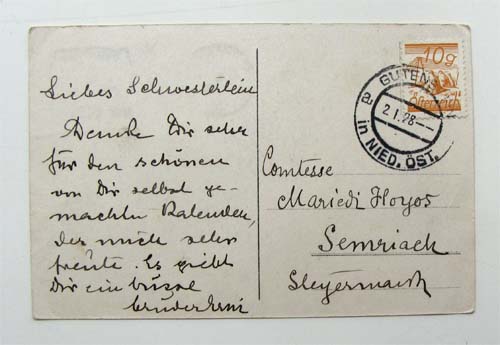 Liebes Schwesterlein
Danke Dir sehr
für den schönen
von Dir selbst ge-
machten Kalender,
der mich sehr
freute. Es grüßt
Dir ein
10g
Österreich
GUTENS
a
2.I.28
in NIED. ÖST.
Comtesse
Mariedi Hoyos
Semriach
Steyermark